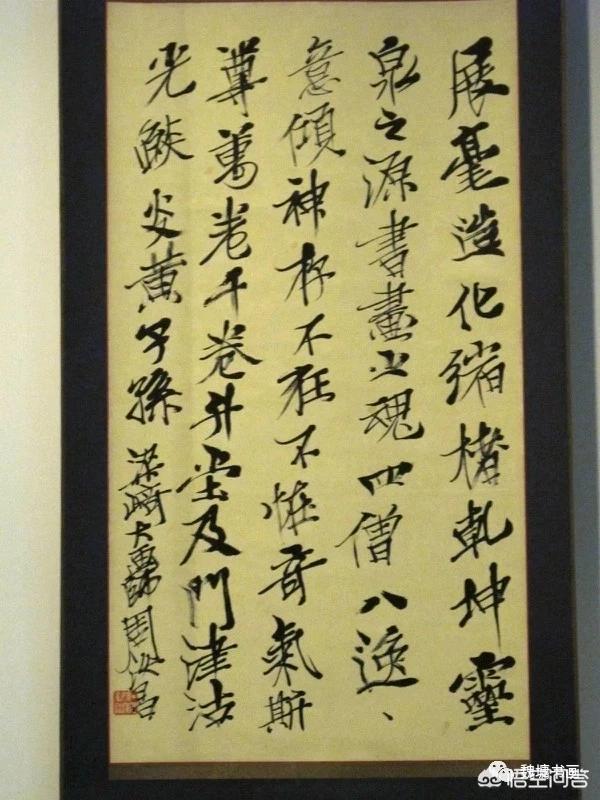 展毫造化構乾坤靈
泉之源書畫之魂四僧八逸、
意傾神存不狂不怪奇氣斯
尊萬卷千卷升堂及門津沽
光燄炎黃子孫 梁崎大畫師 周汝昌
魏塘书画
悟空问答